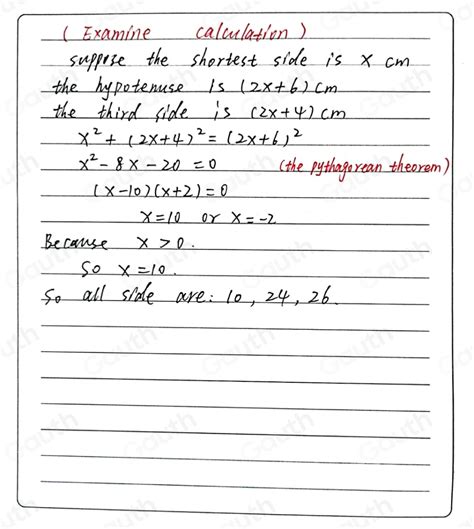 ( Examine calculation )
suppose the shortest side is x cm
the hypotenuse is (2x+6) cm
the third side is (2x+4) cm
x² + (2x+4)² = (2x+6)²
x² - 8x - 20 = 0 (the pythagorean theorem)
(x-10)(x+2) = 0
x=10 or x=-2
Because x > 0.
So x = 10.
So all side are: 10, 24, 26.